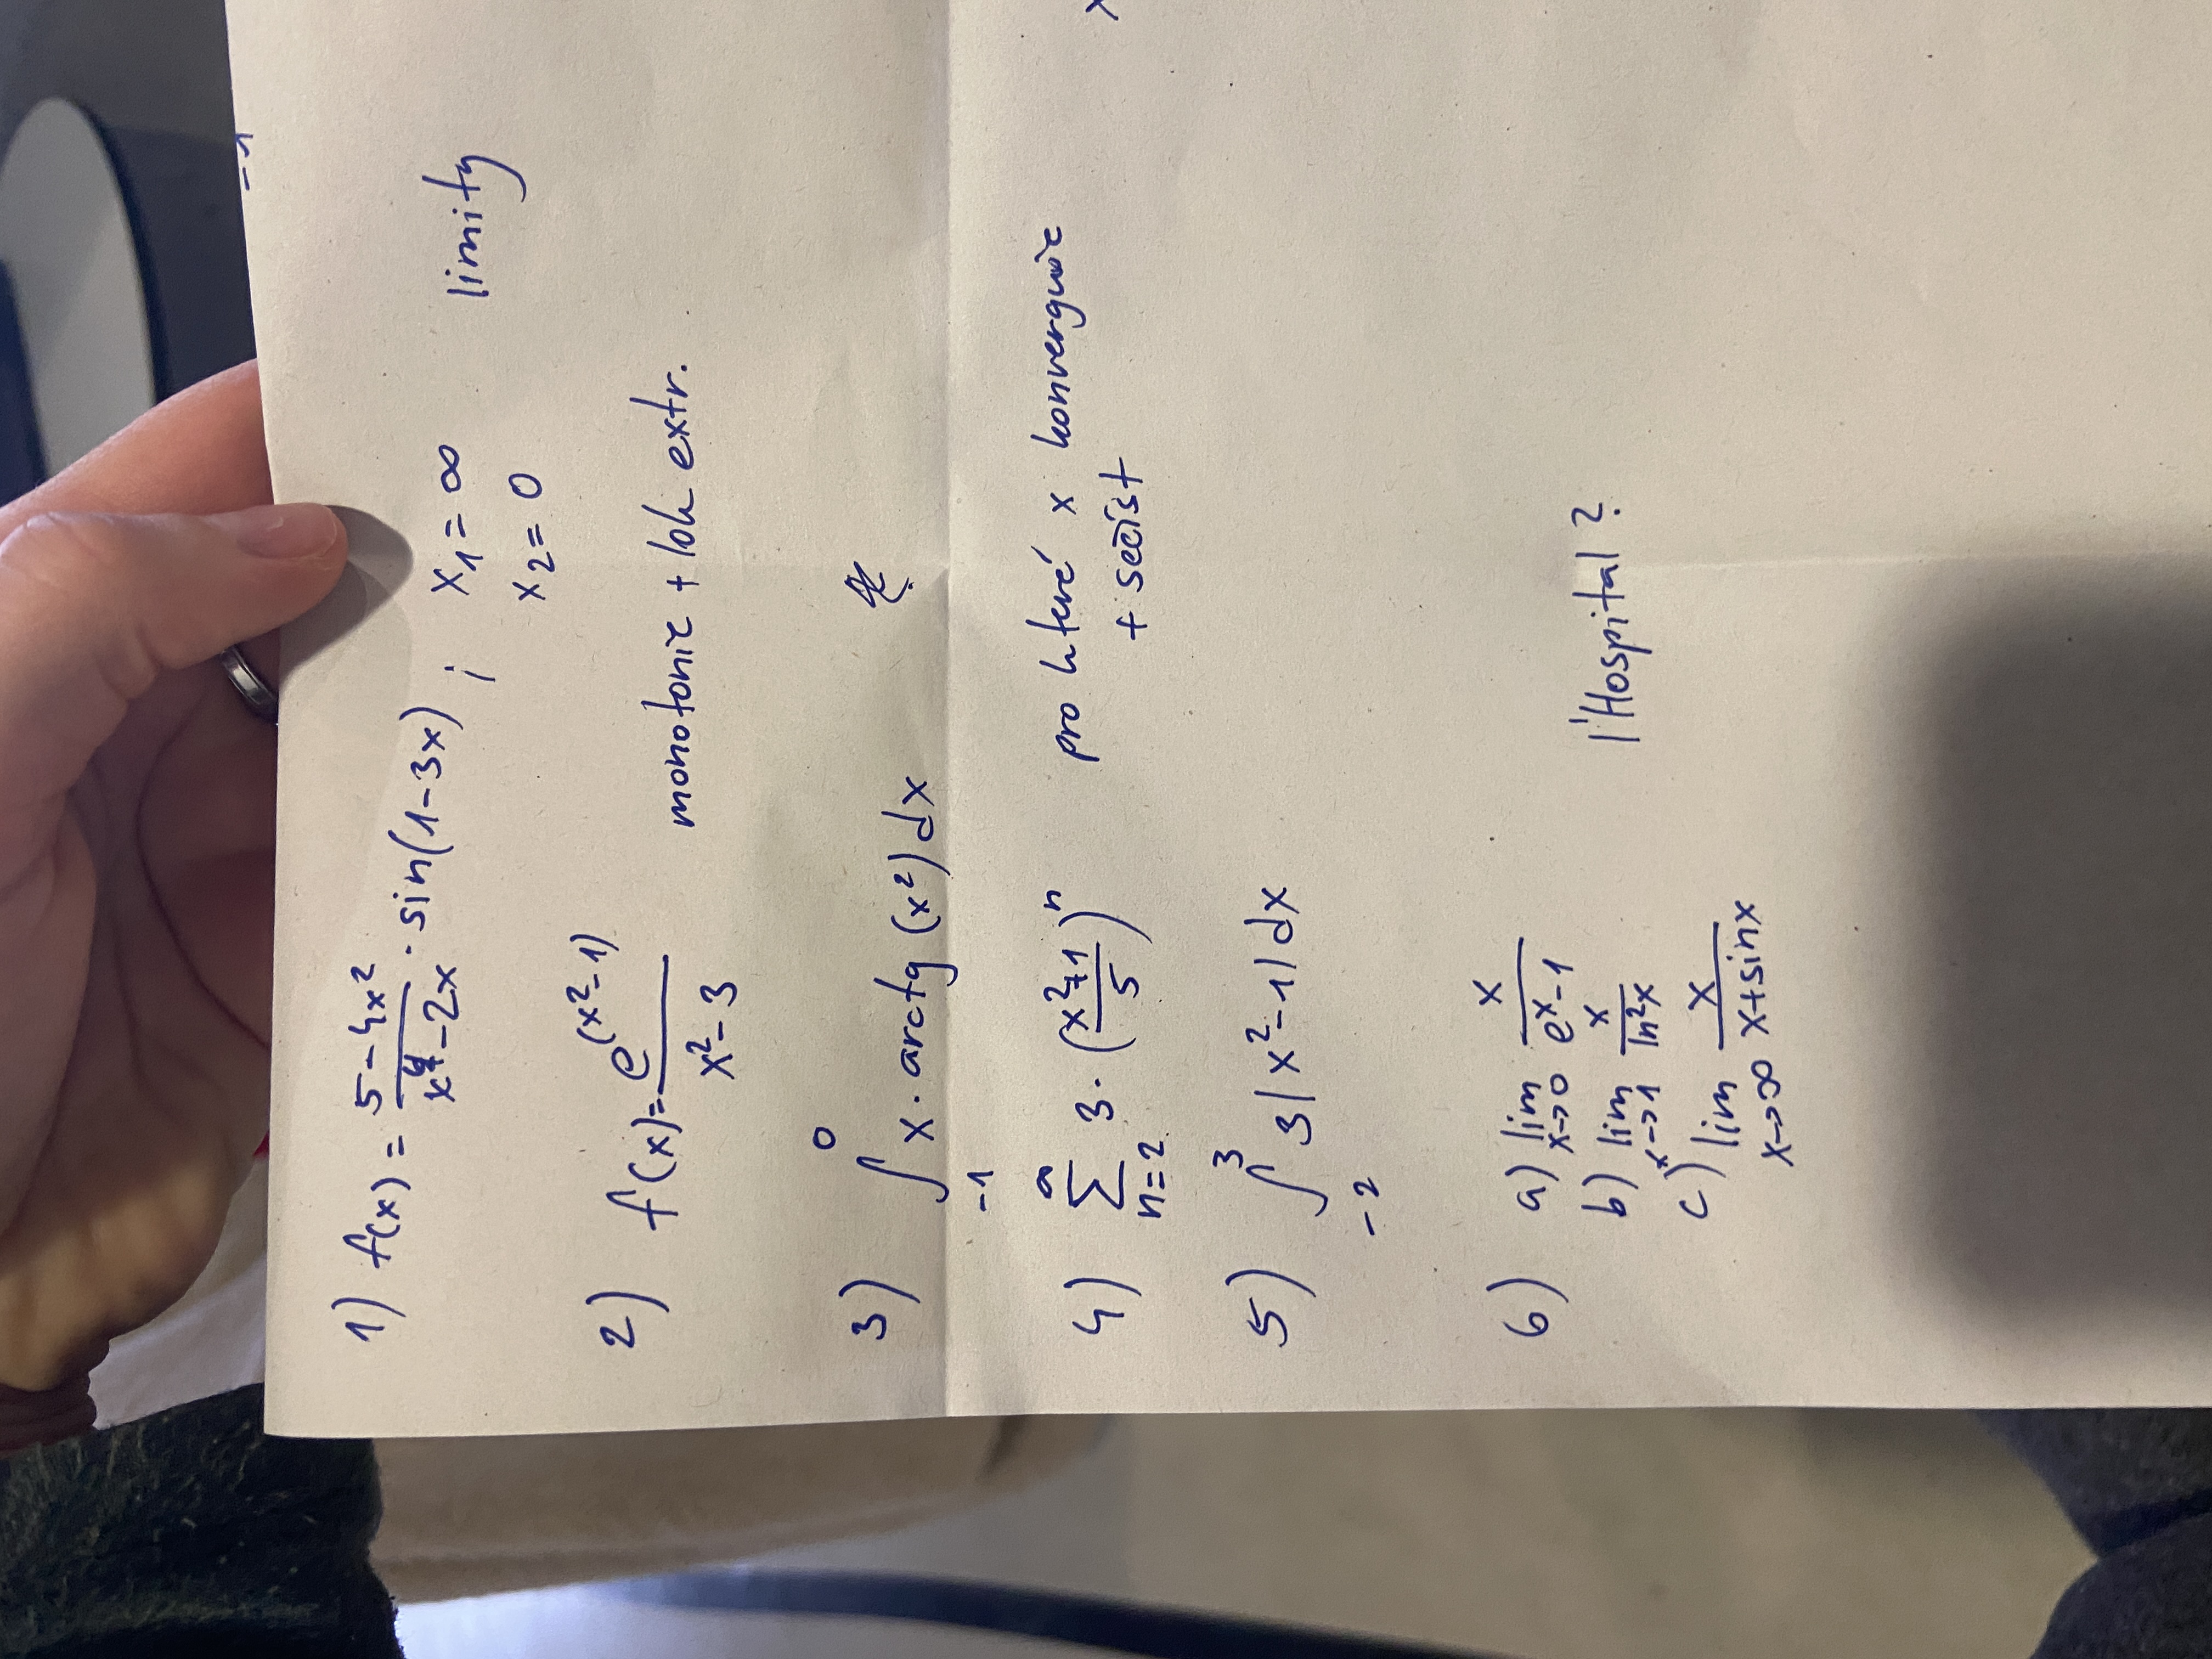 -1
1) f(x) = (5-4x²)/(x⁴-2x) · sin(1-3x) ; x₁ = ∞ limity
x₂ = 0
2) f(x) = e^(x²-1)/(x²-3) monotonie + lok extr.
3) ∫₋₁⁰ x · arctg (x²) dx
4) ∑ n=2 ∞ 3 · ((x²+1)/5)ⁿ pro které x konverguje
+ sečíst
5) ∫₋₂³ 3|x²-1| dx
6) a) lim x→0 x/(eˣ-1)
b) lim x→1 x/(ln²x) l'Hospital ?
c) lim x→∞ x/(x+sinx)